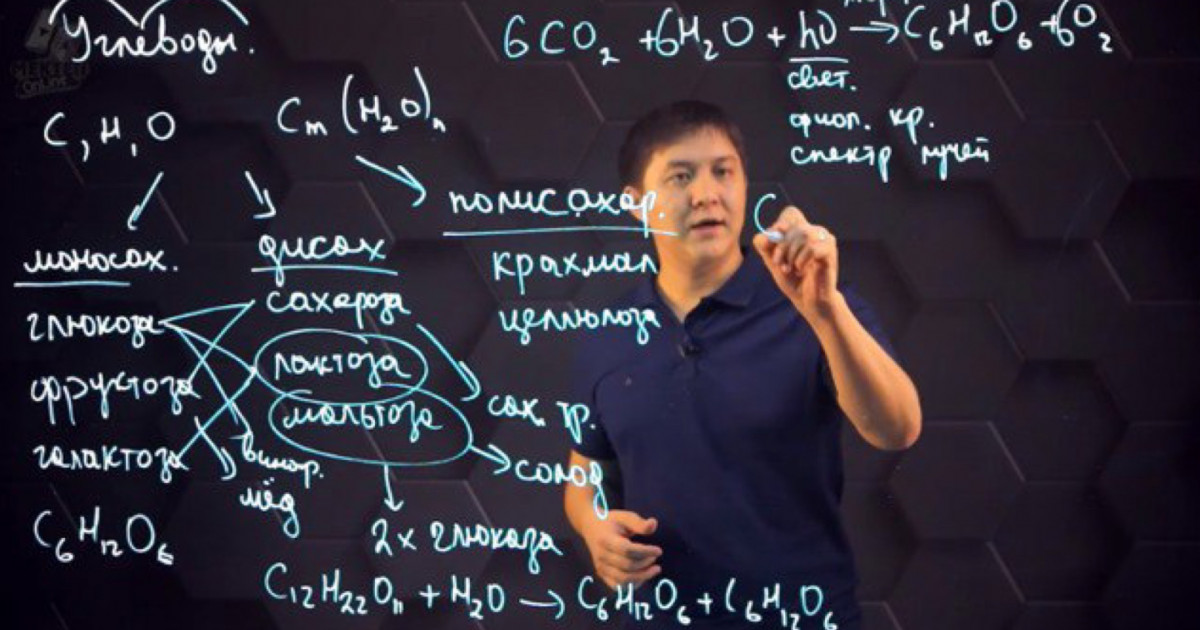 Углеводы.
6CO₂ + 6H₂O + hν → C₆H₁₂O₆ + 6O₂
свет.
фиол. кр.
спектр лучей
C, H, O
Cₘ(H₂O)ₙ
моносах.
глюкоза
фруктоза
галактоза
C₆H₁₂O₆
дисах
сахароза
лактоза
мальтоза
виногр.
мёд
2x глюкоза
полисахар.
крахмал
целлюлоза
сах. тр.
солод
C
C₁₂H₂₂O₁₁ + H₂O → C₆H₁₂O₆ + C₆H₁₂O₆